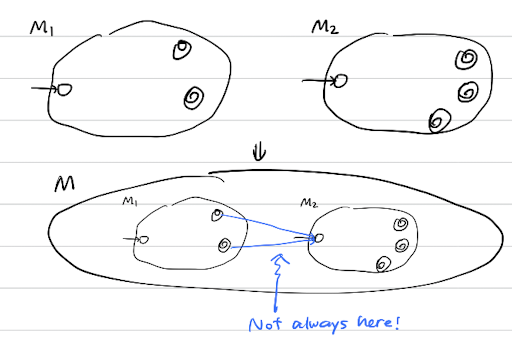 M1
M2
M
M1
M2
Not always here!